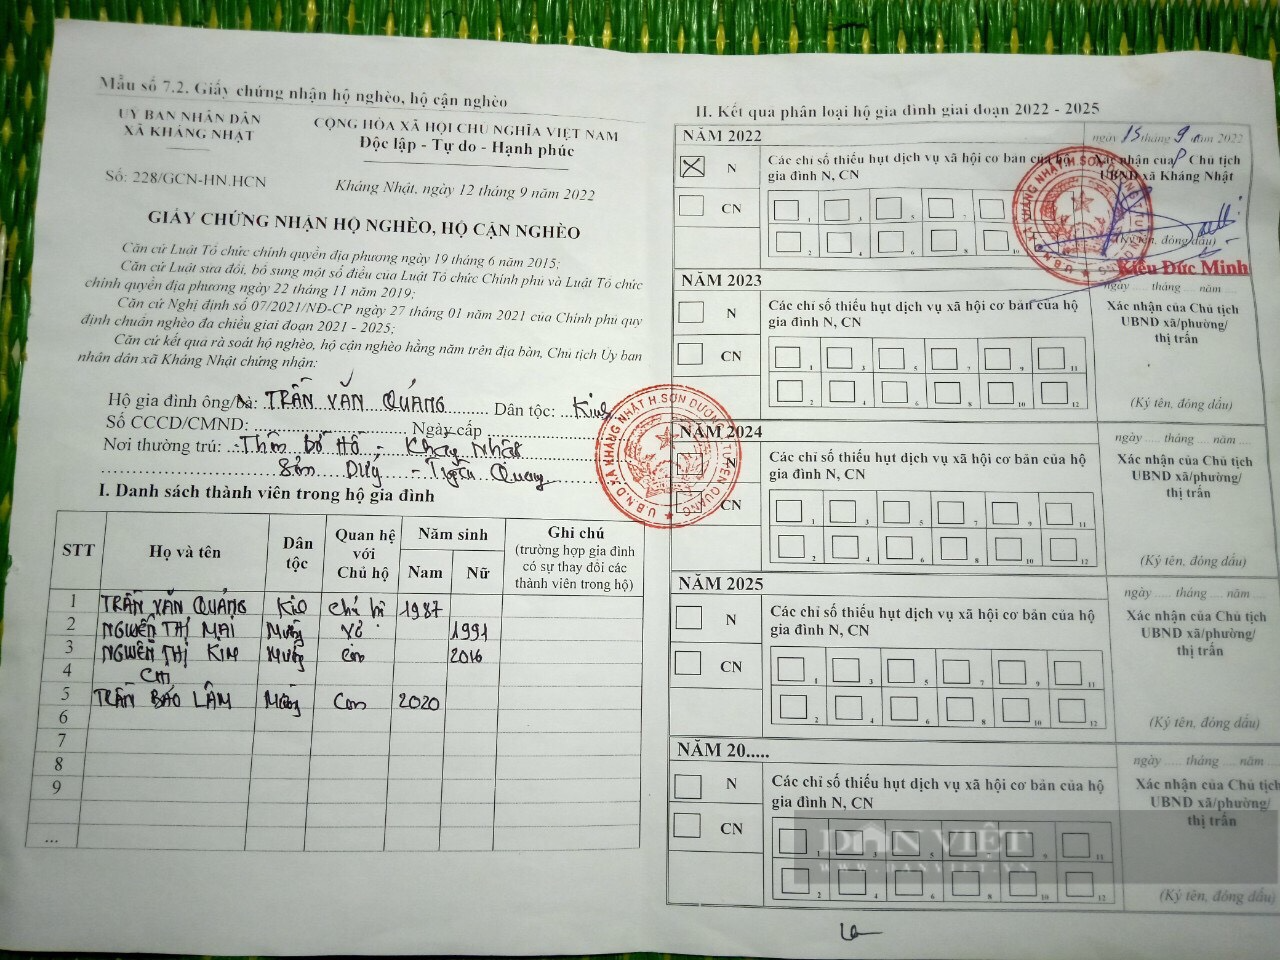 Mẫu số 7.2. Giấy chứng nhận hộ nghèo, hộ cận nghèo
ỦY BAN NHÂN DÂN
XÃ KHÁNG NHẬT
CỘNG HÒA XÃ HỘI CHỦ NGHĨA VIỆT NAM
Độc lập - Tự do - Hạnh phúc
Số: 228/GCN-HN.HCN
Kháng Nhật, ngày 12 tháng 9 năm 2022
GIẤY CHỨNG NHẬN HỘ NGHÈO, HỘ CẬN NGHÈO
Căn cứ Luật Tổ chức chính quyền địa phương ngày 19 tháng 6 năm 2015;
Căn cứ Luật sửa đổi, bổ sung một số điều của Luật Tổ chức Chính phủ và Luật Tổ chức
chính quyền địa phương ngày 22 tháng 11 năm 2019;
Căn cứ Nghị định số 07/2021/NĐ-CP ngày 27 tháng 01 năm 2021 của Chính phủ quy
định chuẩn nghèo đa chiều giai đoạn 2021 - 2025;
Căn cứ kết quả rà soát hộ nghèo, hộ cận nghèo hằng năm trên địa bàn, Chủ tịch Ủy ban
nhân dân xã Kháng Nhật chứng nhận:
Hộ gia đình ông/bà: TRẦN VĂN QUẢNG Dân tộc: Kinh
Số CCCD/CMND: Ngày cấp
Nơi thường trú: Kháng Nhật
Sơn Dương - Tuyên Quang
I. Danh sách thành viên trong hộ gia đình
STT Họ và tên Dân tộc Quan hệ với Chủ hộ Năm sinh Nam Nữ Ghi chú
(trường hợp gia đình có sự thay đổi các thành viên trong hộ)
1 TRẦN VĂN QUẢNG 1987
2 NGUYỄN THỊ MAI Mường Vợ 1991
3 NGUYỄN THỊ KIM Mường con 2016
4 CHI
5 TRẦN BẢO LÂM Mường Con 2020
6
7
8
9
...
II. Kết quả phân loại hộ gia đình giai đoạn 2022 - 2025
NĂM 2022
ngày 15 tháng 9 năm 2022
N
CN
Các chỉ số thiếu hụt dịch vụ xã hội cơ bản của hộ
gia đình N, CN
Xác nhận của Chủ tịch
UBND xã Kháng Nhật
(Ký tên, đóng dấu)
Kiều Đức Minh
U.B.N.D XÃ KHÁNG NHẬT H.SƠN DƯƠNG T.TUYÊN QUANG
NĂM 2023
ngày ..... tháng .... năm ....
N
CN
Các chỉ số thiếu hụt dịch vụ xã hội cơ bản của hộ
gia đình N, CN
1 3 5 7 9 11
2 4 6 8 10 12
Xác nhận của Chủ tịch
UBND xã/phường/
thị trấn
(Ký tên, đóng dấu)
U.B.N.D XÃ KHÁNG NHẬT H.SƠN DƯƠNG T.TUYÊN QUANG
NĂM 2024
ngày ..... tháng .... năm ....
N
CN
Các chỉ số thiếu hụt dịch vụ xã hội cơ bản của hộ
gia đình N, CN
1 3 5 7 9 11
2 4 6 8 10 12
Xác nhận của Chủ tịch
UBND xã/phường/
thị trấn
(Ký tên, đóng dấu)
NĂM 2025
ngày ..... tháng .... năm ....
N
CN
Các chỉ số thiếu hụt dịch vụ xã hội cơ bản của hộ
gia đình N, CN
1 3 5 7 9 11
2 4 6 8 10 12
Xác nhận của Chủ tịch
UBND xã/phường/
thị trấn
(Ký tên, đóng dấu)
NĂM 20.....
ngày ..... tháng .... năm ....
N
CN
Các chỉ số thiếu hụt dịch vụ xã hội cơ bản của hộ
gia đình N, CN
1 3 5 7 9 11
2 4 6 8 10 12
Xác nhận của Chủ tịch
UBND xã/phường/
thị trấn
(Ký tên, đóng dấu)
DÂN VIỆT
WWW.DANVIET.VN